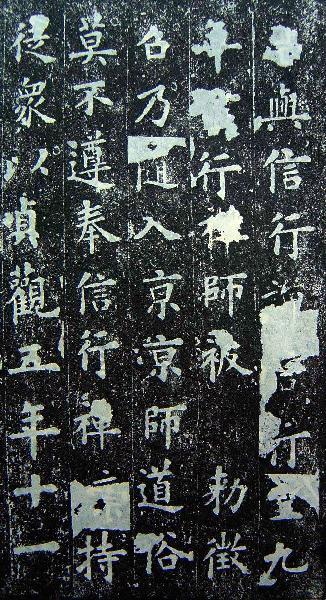 與信行行至九
年行禪師被勅徵
召乃隨入京京師道俗
莫不遵奉信行禪持
徒眾以貞觀五年十一